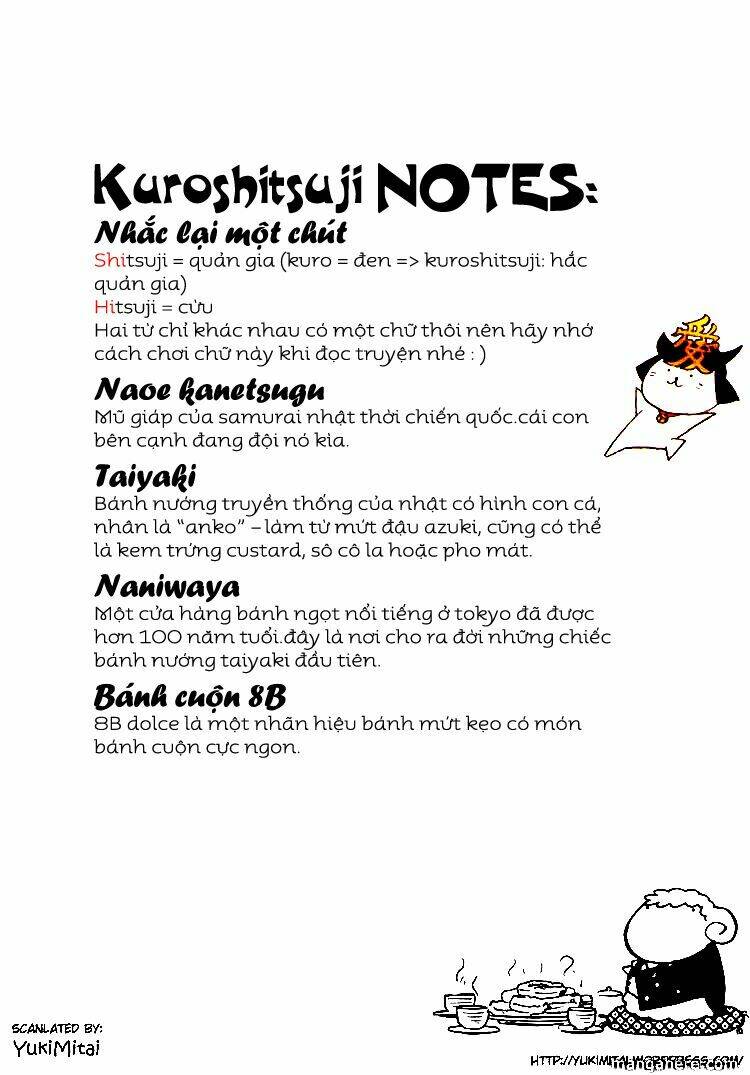 Kuroshitsuji NOTES:
Nhắc lại một chút
Shitsuji = quản gia (kuro = đen => kuroshitsuji: hắc
quản gia)
Hitsuji = cừu
Hai từ chỉ khác nhau có một chữ thôi nên hãy nhớ
cách chơi chữ này khi đọc truyện nhé : )
愛
Naoe kanetsugu
Mũ giáp của samurai nhật thời chiến quốc.cái con
bên cạnh đang đội nó kìa.
Taiyaki
Bánh nướng truyền thống của nhật có hình con cá,
nhân là “anko” – làm từ mứt đậu azuki, cũng có thể
là kem trứng custard, sô cô la hoặc pho mát.
Naniwaya
Một cửa hàng bánh ngọt nổi tiếng ở tokyo đã được
hơn 100 năm tuổi.đây là nơi cho ra đời những chiếc
bánh nướng taiyaki đầu tiên.
Bánh cuộn 8B
8B dolce là một nhãn hiệu bánh mứt kẹo có món
bánh cuộn cực ngon.
?
SCANLATED BY:
YukiMitai
HTTP://YUKIMITAI.WORDPRESS.COM/
mangahere.com